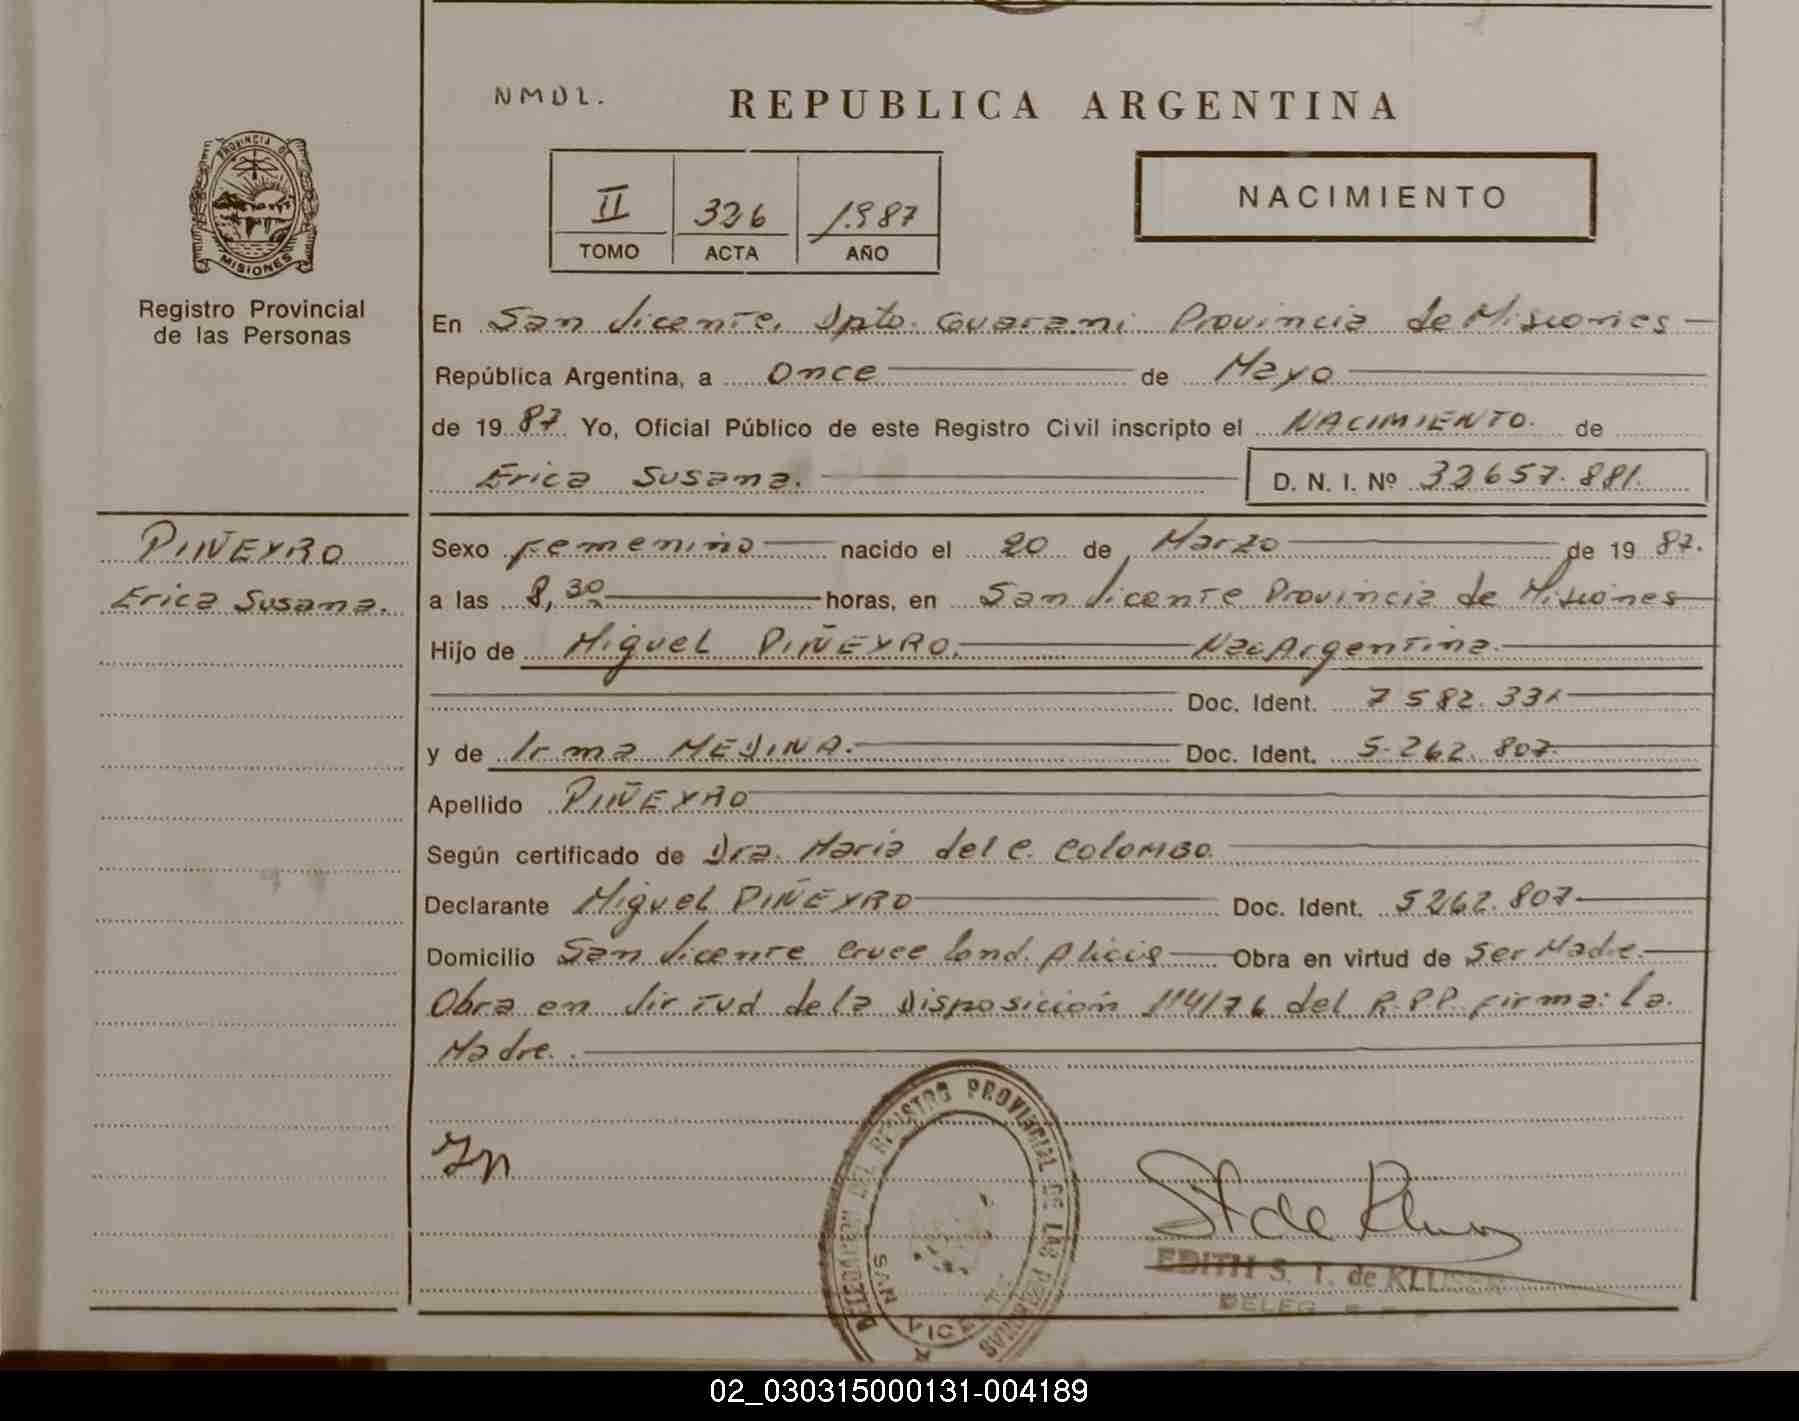 NMDL.
REPUBLICA ARGENTINA
PROVINCIA DE
MISIONES
Registro Provincial
de las Personas
II 326 1987
TOMO ACTA AÑO
NACIMIENTO
En San Vicente, Dpto. Guarani Provincia de Misiones
República Argentina, a Once de Mayo
de 1987 Yo, Oficial Público de este Registro Civil inscripto el NACIMIENTO. de
Erica Susana. D. N. I. Nº 32657.881.
PIÑEYRO
Erica Susana.
Sexo Femenino nacido el 20 de Marzo de 1987.
a las 8,30 horas, en San Vicente Provincia de Misiones
Hijo de Miguel PIÑEYRO. Nac Argentina.
Doc. Ident. 7 582.331
y de Irma MEDINA. Doc. Ident. 5.262.807
Apellido PIÑEYRO
Según certificado de Dra. Maria del C. COLOMBO.
Declarante Miguel PIÑEYRO Doc. Ident. 5262.807
Domicilio San Vicente Cruce Cond. Alicia Obra en virtud de Ser Madre.
Obra en Virtud de la Disposición 114/76 del R.P.P. firma: la
Madre.
DELEGACION DEL REGISTRO PROVINCIAL DE LAS PERSONAS
SAN VICENTE
EDITH S. T. de KLUSER
DELEG
02_030315000131-004189